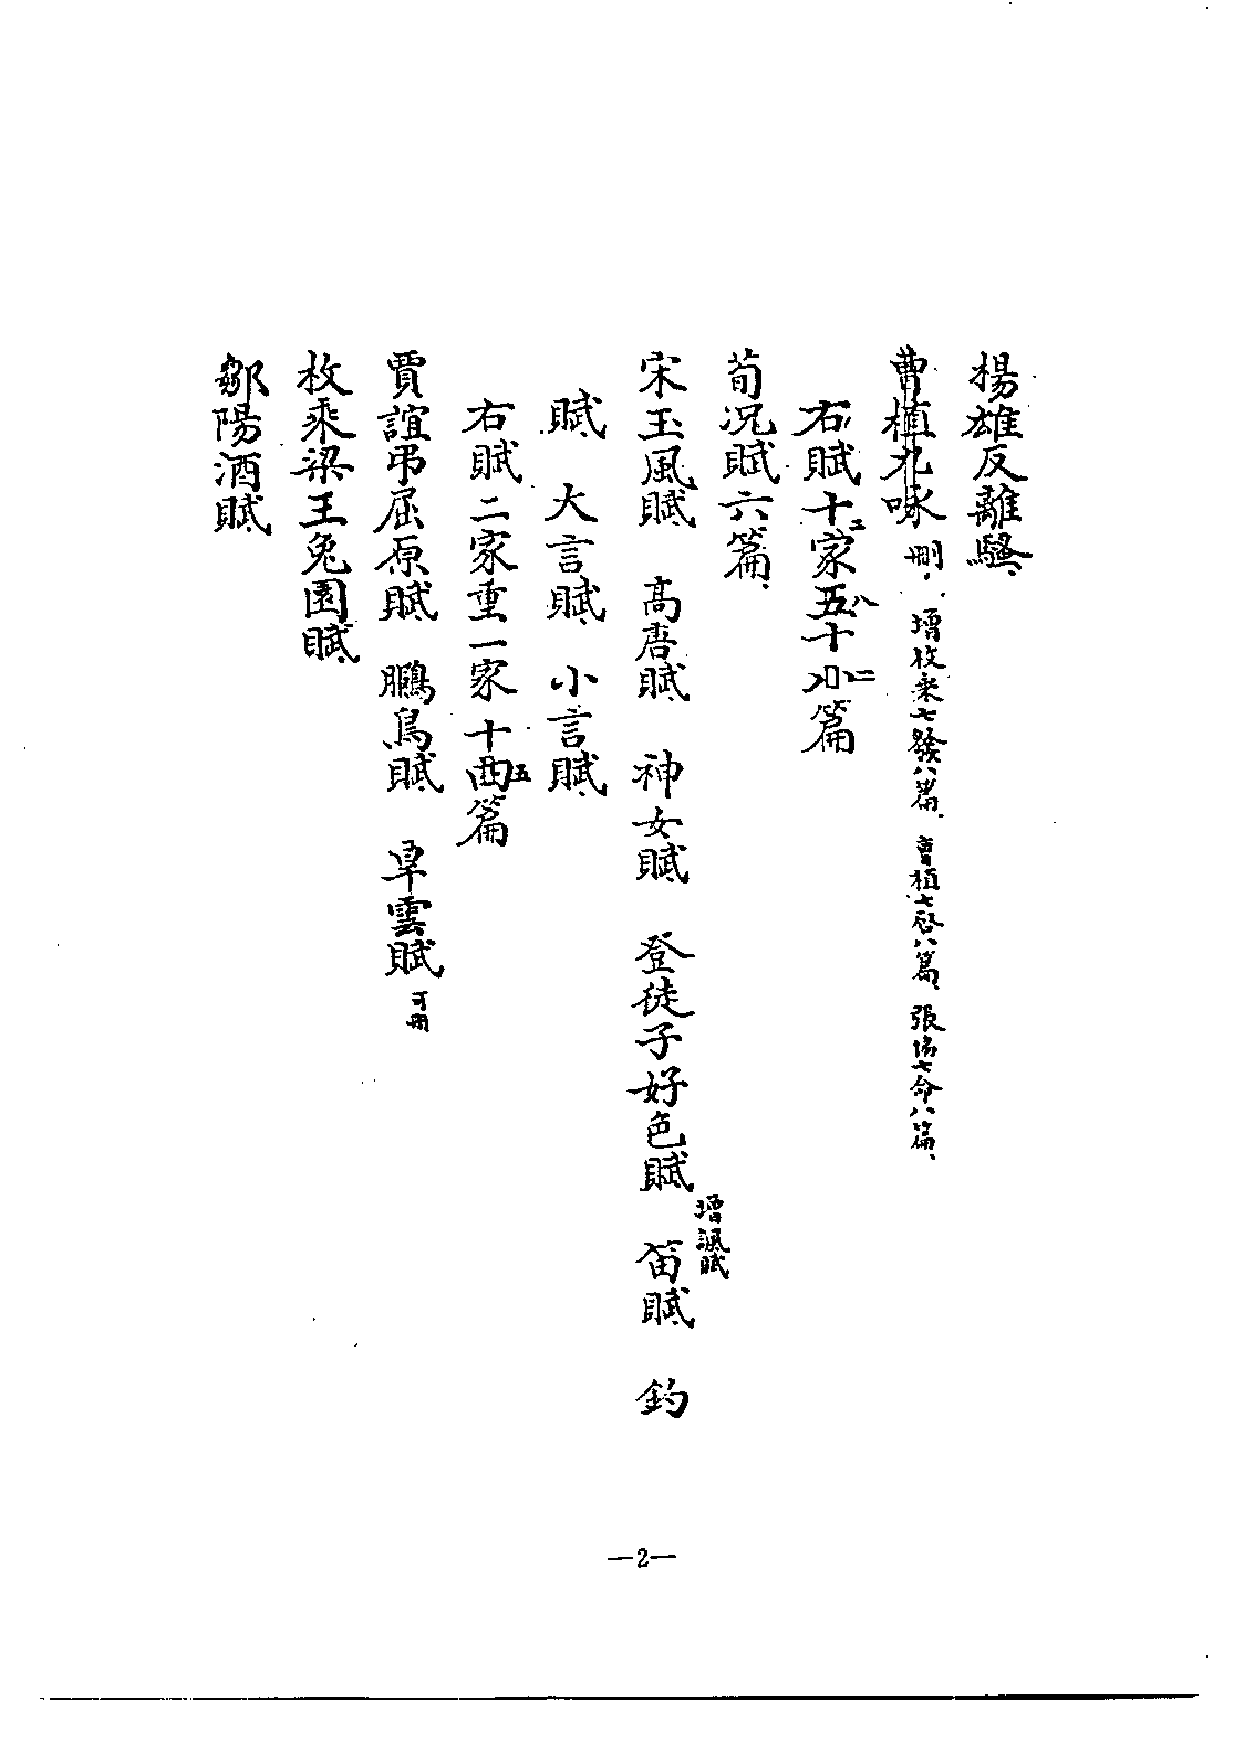 揚雄反離騷
曹植九咏 刪 增枚乘七發八篇 曹植七啓八篇 張協七命八篇
右賦十二家五十八篇
荀況賦六篇
宋玉風賦 高唐賦 神女賦 登徒子好色賦 增諷賦 笛賦 釣
賦 大言賦 小言賦
右賦二家重一家十五篇
賈誼弔屈原賦 鵩鳥賦 旱雲賦 可刪
枚乘梁王兔園賦
鄒陽酒賦
—2—